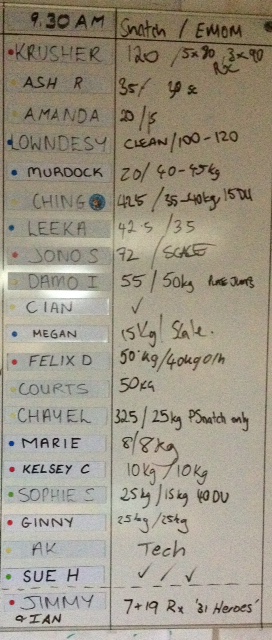 9.30 AM Snatch / EMOM
KRUSHER 120 / 5x80, 3x90
Rx
ASH R 35/ sc
AMANDA 20/s
LOWNDESY CLEAN/100-120
MURDOCK 20/ 40-45kg
CHING 425 /35-40kg, 15DU
LEEKA 42.5 /35
JONO S 72 / SCALE
DAMO I 55 / 50kg
CIAN ✓
MEGAN 15Kg / Scale.
FELIX D 50kg/40kg O/h
COURTS 50kg
CHAYEL 325 / 25kg PSnatch only
MARIE 8/8kg
KELSEY C 10kg/10kg
SOPHIE S 25kg/15kg 40DU
GINNY 25kg/25kg
AK Tech
SUE H ✓ / ✓ / ✓
JIMMY 7+19 Rx '31 Heroes'
& IAN